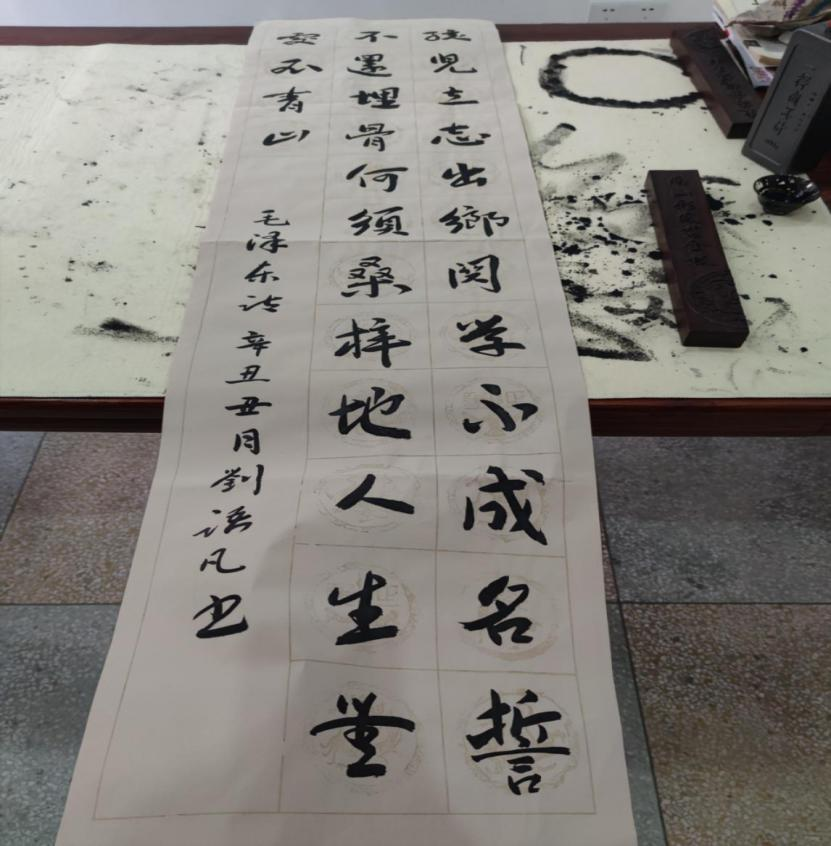 孩兒立志出鄉関学不成名誓
不還埋骨何須桑梓地人生無
處不青山
毛泽东诗 辛丑丑月劉语凡书